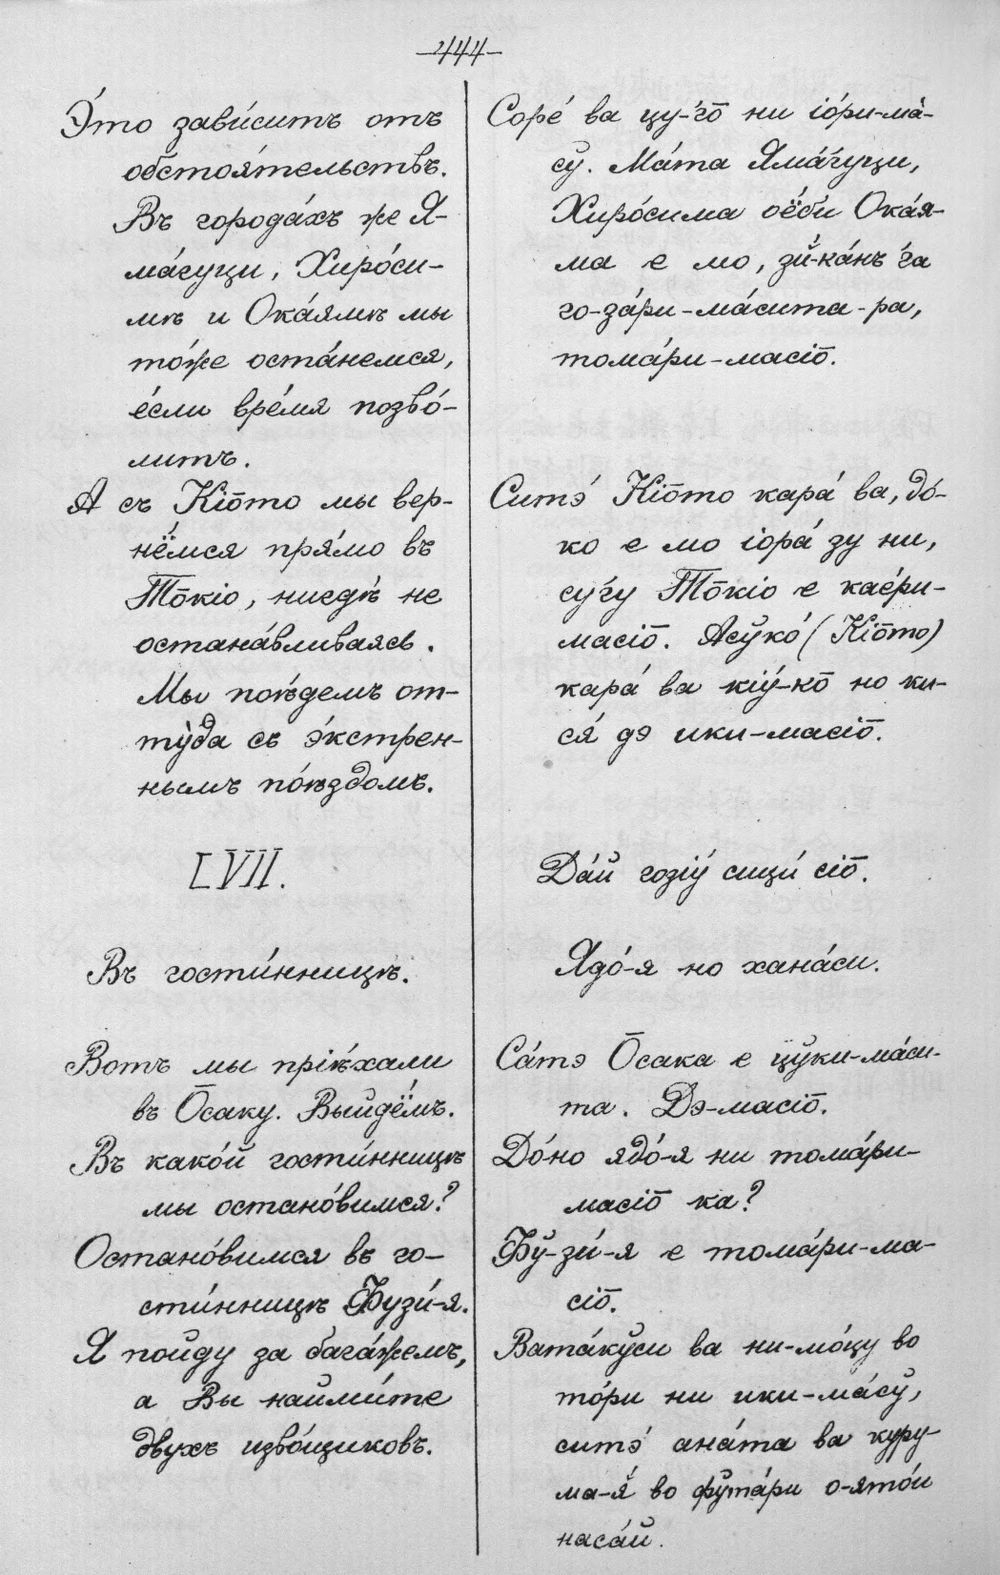 –444–
Э́то зави́ситъ отъ
обстоя́тельствъ.
Въ города́хъ же Я-
ма́гуци, Хиро́си-
мѣ и Ока́ямѣ мы
то́же оста́немся,
е́сли вре́мя позво́-
литъ.
А съ Кіо̄то мы вер-
нё́мся пря́мо въ
То̄кіо, нигдѣ не
остана́вливаясь.
Мы поѣ́демъ от-
ту́да съ э́кстрен-
нымъ по́ѣздомъ.
LVII.
Въ гости́нницѣ.
Вотъ мы пріѣ́хали
въ О̄саку. Выйдё́мъ.
Въ како́й гости́нницѣ
мы остано́вимся?
Остано́вимся въ го-
сти́нницѣ Фузи́-я.
Я пойду за бага́жемъ,
а Вы найми́те
двухъ изво́щиковъ.
Соре́ ва цу-го̄ ни іо́ри-ма́-
сӯ. Ма́та Яма́гуци,
Хиро́сима оё́би Ока́я-
ма е мо, зӣ-ка́нъ га
го-за́ри-ма́сита-ра,
тома́ри-масіо̄.
Ситэ́ Кіо̄то кара́ ва, до́-
ко е мо іора́ зу ни,
сугу То̄кіо е кае́ри-
масіо̄. Асўко́ (Кіо̄то)
кара́ ва кіу́-ко̄ но ки-
ся́ дэ ики-масіо̄.
Да́й гозіу́ сици́ сіо̄.
Ядо́-я но хана́си.
Са́тэ О̄сака е цўки-ма́си-
та. Дэ-масіо̄.
До́но ядо́-я ни тома́ри-
масіо̄ ка?
Фў-зи́-я е тома́ри-ма-
сіо̄.
Вата́кўси ва ни-мо́цу во
то́ри ни ики-ма́сў,
ситэ́ ана́та ва куру-
ма-я́ во фўта́ри о-ято́и
наса́й.